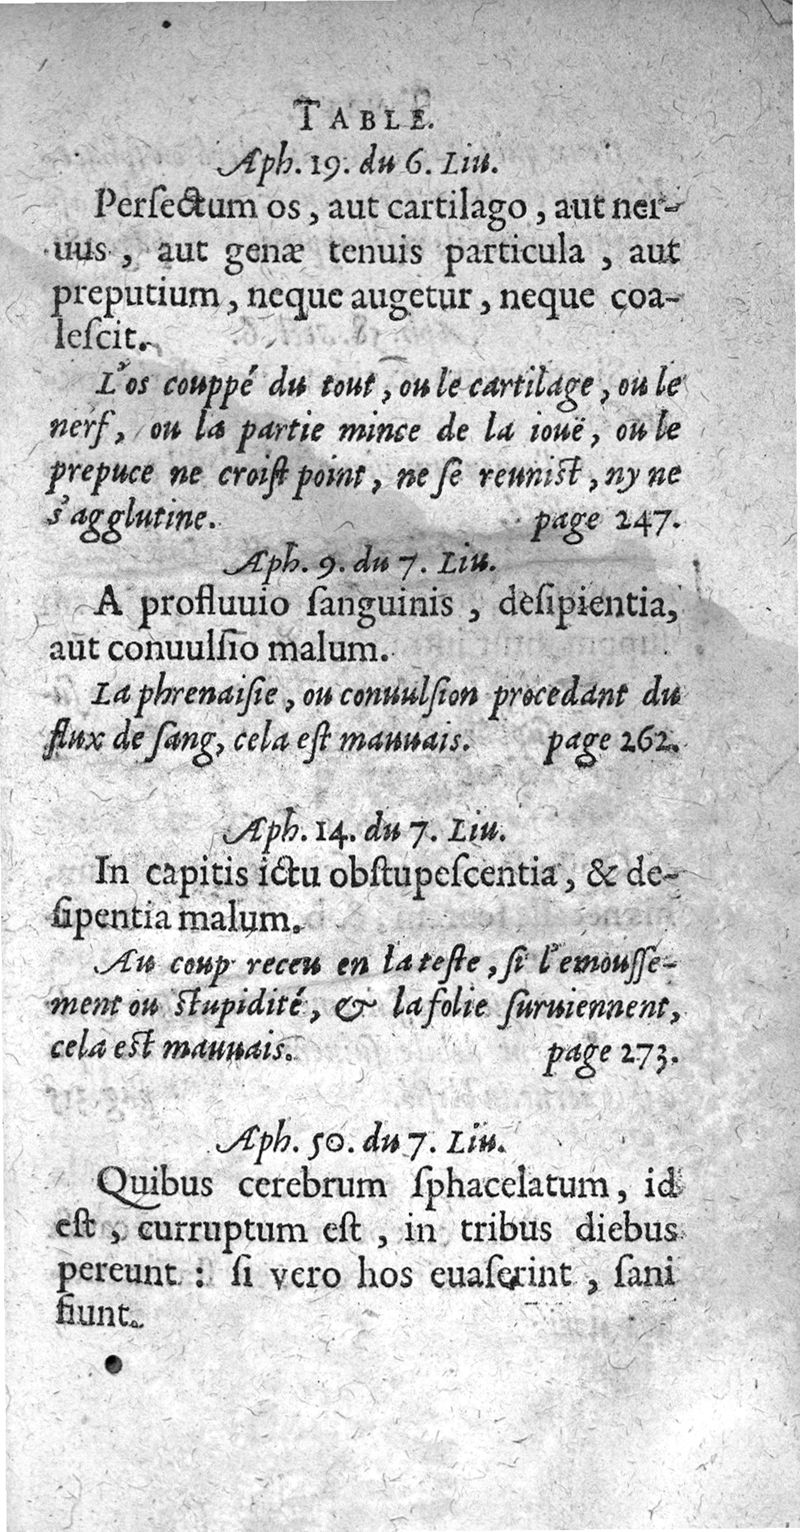 TABLE.
Aph. 19. du 6. Liu.
Perſectum os, aut cartilago, aut ner-
uus, aut genæ tenuis particula, aut
preputium, neque augetur, neque coa-
leſcit.
L'os couppé du tout, ou le cartilage, ou le
nerf, ou la partie mince de la iouë, ou le
prepuce ne croiſt point, ne ſe reuniſt, ny ne
s'agglutine. page 247.
Aph. 9. du 7. Liu.
A profluuio ſanguinis, deſipientia,
aut conuulſio malum.
La phrenaiſie, ou conuulſion procedant du
flux de ſang, cela eſt mauuais. page 262.
Aph. 14. du 7. Liu.
In capitis ictu obſtupeſcentia, & de-
ſipentia malum.
Au coup receu en la teſte, ſi l'emouſſe-
ment ou ſtupidité, & la folie ſuruiennent,
cela eſt mauuais. page 273.
Aph. 50. du 7. Liu.
Quibus cerebrum ſphacelatum, id
eſt, curruptum eſt, in tribus diebus
pereunt: ſi vero hos euaſerint, ſani
fiunt.